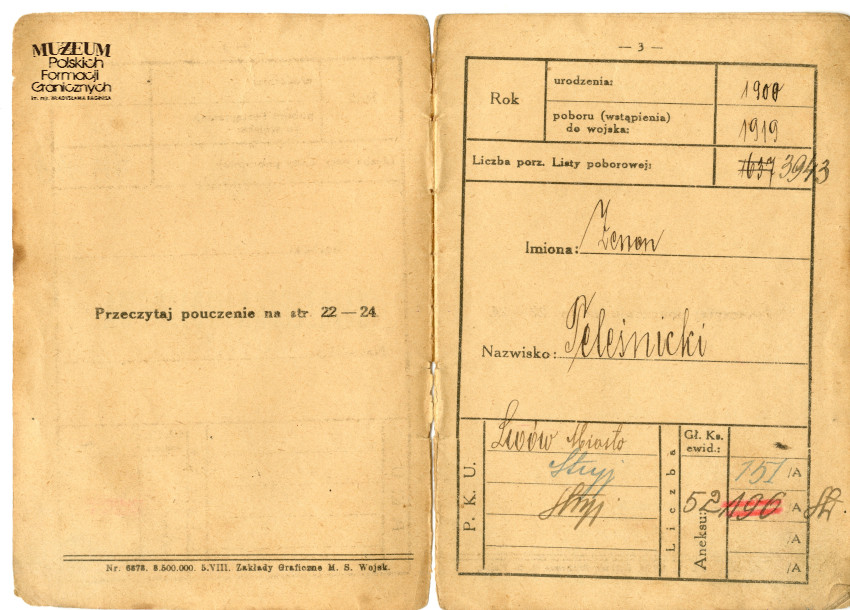 MUZEUM
Polskich
Formacji
Granicznych
im. mjr. WŁADYSŁAWA RAGINISA
Przeczytaj pouczenie na str 22—24.
Nr. 6878. 8.500.000. 5.VIII. Zakłady Graficzne M. S. Wojsk.
— 3 —
Rok
urodzenia: 1900
poboru (wstąpienia)
do wojska: 1919
Liczba porz. Listy poborowej: 1637 3943
Imiona: Zenon
Nazwisko: Peleśnicki
P. K. U.
Lwów Miasto
Stryj
Stryj
Liczba
Gł. Ks.
ewid.:
Aneksu:
151 /A
52 196 /A
/A
/A